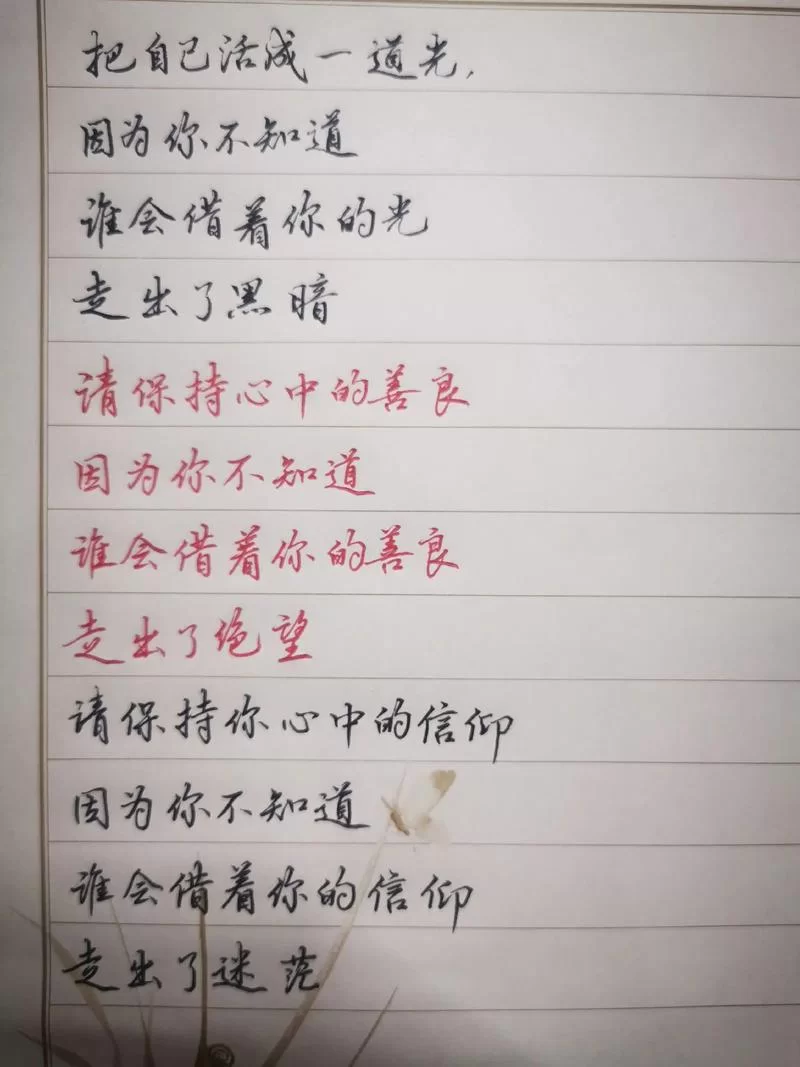 把自己活成一道光,
因为你不知道
谁会借着你的光
走出了黑暗
请保持心中的善良
因为你不知道
谁会借着你的善良
走出了绝望
请保持你心中的信仰
因为你不知道
谁会借着你的信仰
走出了迷茫